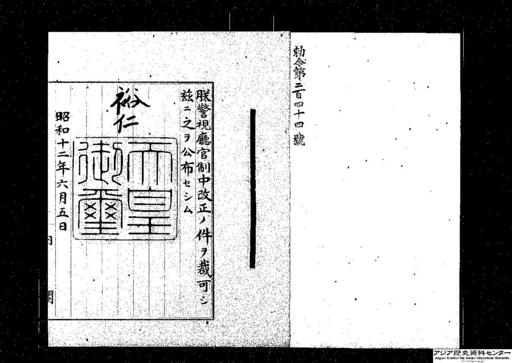 勅令第二百四十四號
朕警視廳官制中改正ノ件ヲ裁可シ
玆ニ之ヲ公布セシム
裕仁
天皇
御璽
昭和十二年六月五日
アジア歴史資料センター
Japan Center for Asian Historical Records